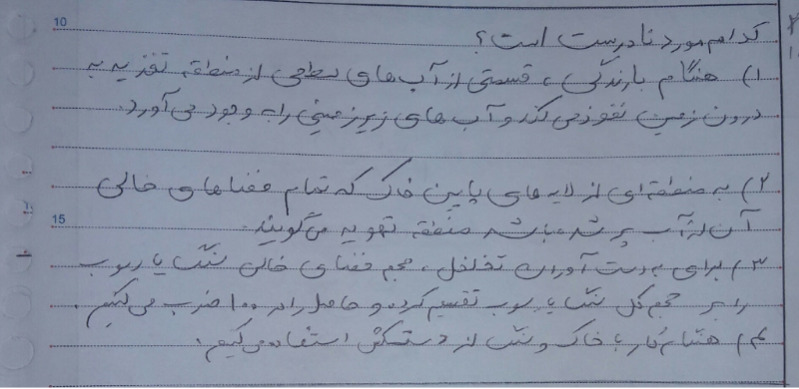 10
کدام مورد نادرست است؟
۱) هنگام بارندگی، قسمتی از آب‌های سطحی از منطقه تغذیه به
درون زمین نفوذ می‌کند و آب‌های زیرزمینی را به وجود می‌آورد.
۲) به منطقه‌ای از لایه‌های پایین خاک که تمام فضاهای خالی
15
آن از آب پر شده باشد منطقه تهویه می‌گویند.
۳) برای به دست آوردن تخلخل، حجم فضای خالی سنگ یا رسوب
را بر حجم کل سنگ یا رسوب تقسیم کرده و حاصل را در ۱۰۰ ضرب می‌کنیم.
۴) هنگام کار با خاک و سنگ از دستکش استفاده می‌کنیم.